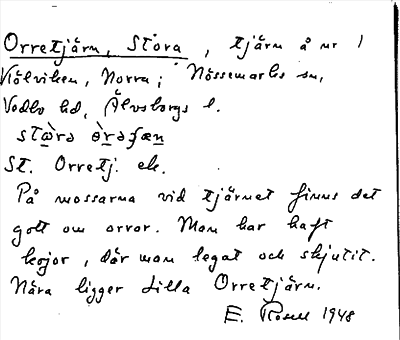 Orretjärn, Stora, tjärn å nr 1
Kölviken, Norra; Nössemarks sn,
Vedbo hd, Älvsborgs l.
St. Orretj. ek.
På mossarna vid tjärnet finns det
gott om orrar. Man har haft
kojor, där man legat och skjutit.
Nära ligger Lilla Orretjärn.
E. Rosell 1948